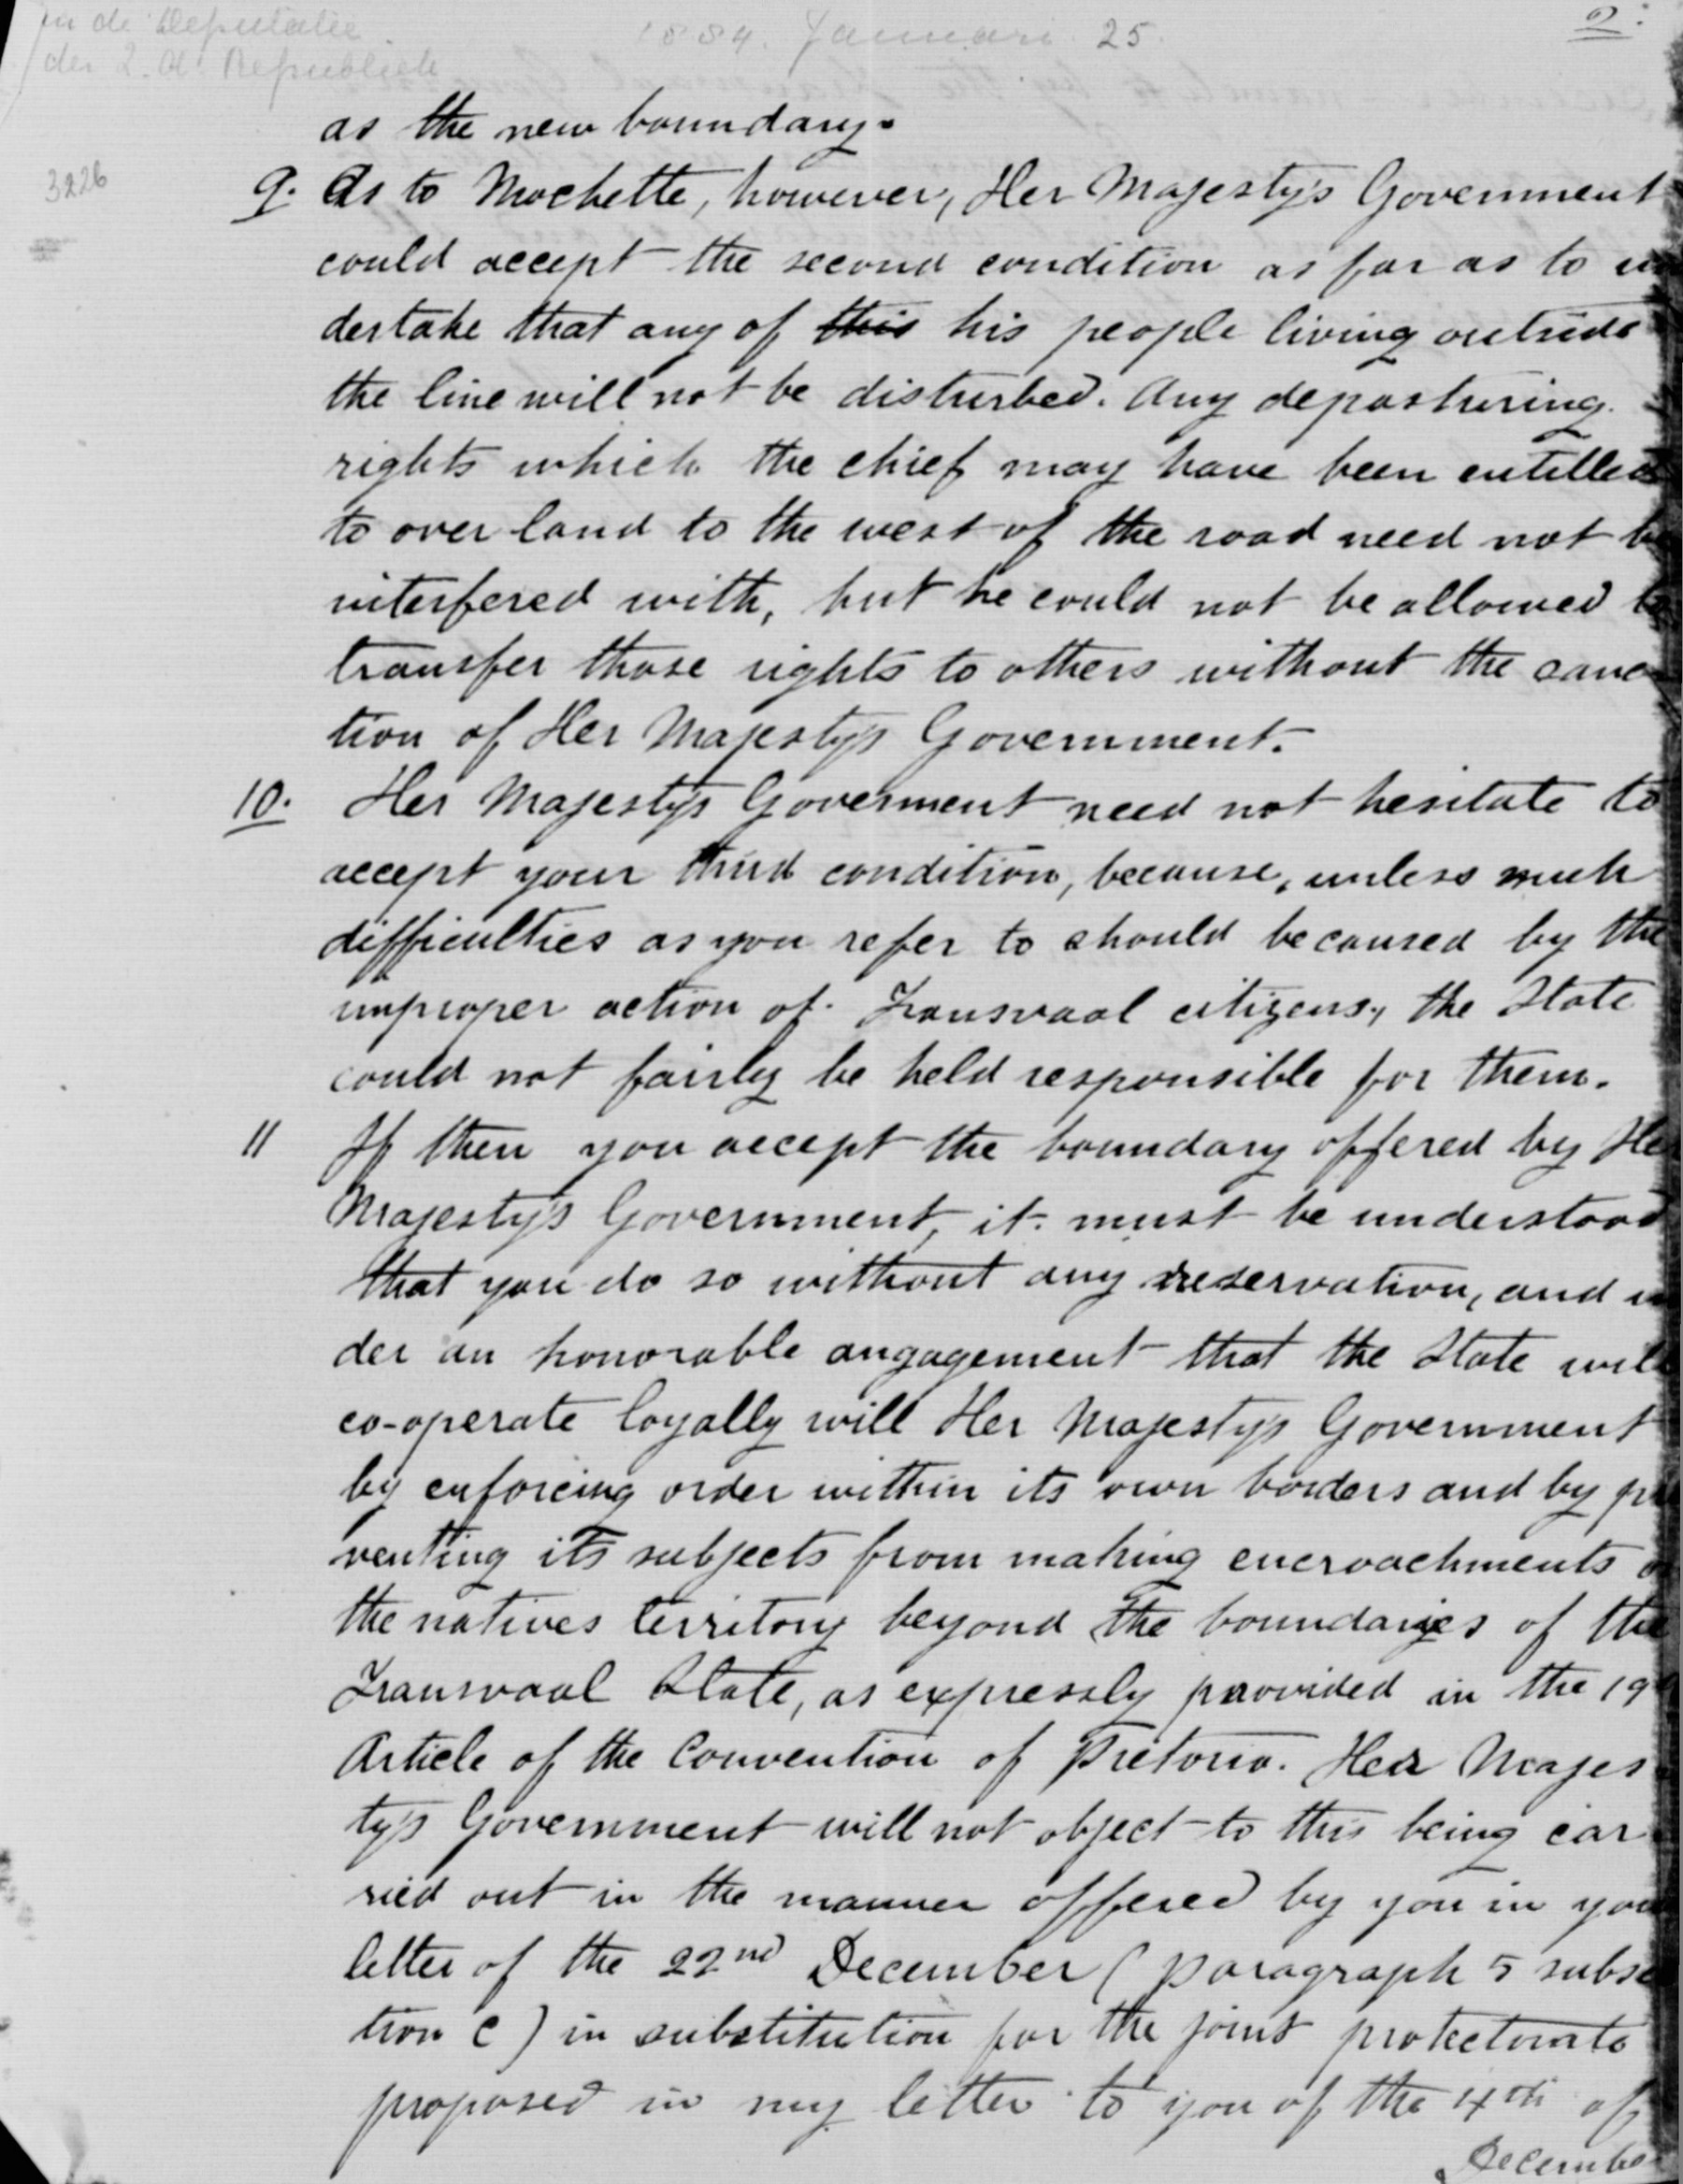 in de Deputatie
der Z. A. Republiek
1884. Januari 25.
2.
3226
as the new boundary.
9. As to Mochette, however, Her Majesty's Government
could accept the second condition as far as to un
dertake that any of this his people living outside
the line will not be disturbed. Any depasturing
rights which the chief may have been entitled
to over land to the west of the road need not be
interfered with, but he could not be allowed to
transfer those rights to others without the sanc
tion of Her Majesty's Government.
10. Her Majesty's Goverment need not hesitate to
accept your third condition, because, unless such
difficulties as you refer to should be caused by the
improper action of Transvaal citizens, the State
could not fairly be held responsible for them.
11 If then you accept the boundary offered by Her
Majesty's Government, it must be understood
that you do so without any reservation, and un
der an honorable angagement that the State will
co-operate loyally will Her Majesty's Government
by enforcing order within its own borders and by pre
venting its subjects from making encroachments on
the natives territory beyond the boundaries of the
Transvaal State, as expressly provided in the 19th
Article of the Convention of Pretoria. Her Majes
ty's Government will not object to this being car
ried out in the manner offered by you in your
letter of the 22nd December (paragraph 5 subsec
tion c) in substitution for the joint protectorate
proposed in my letter to you of the 4th of
December